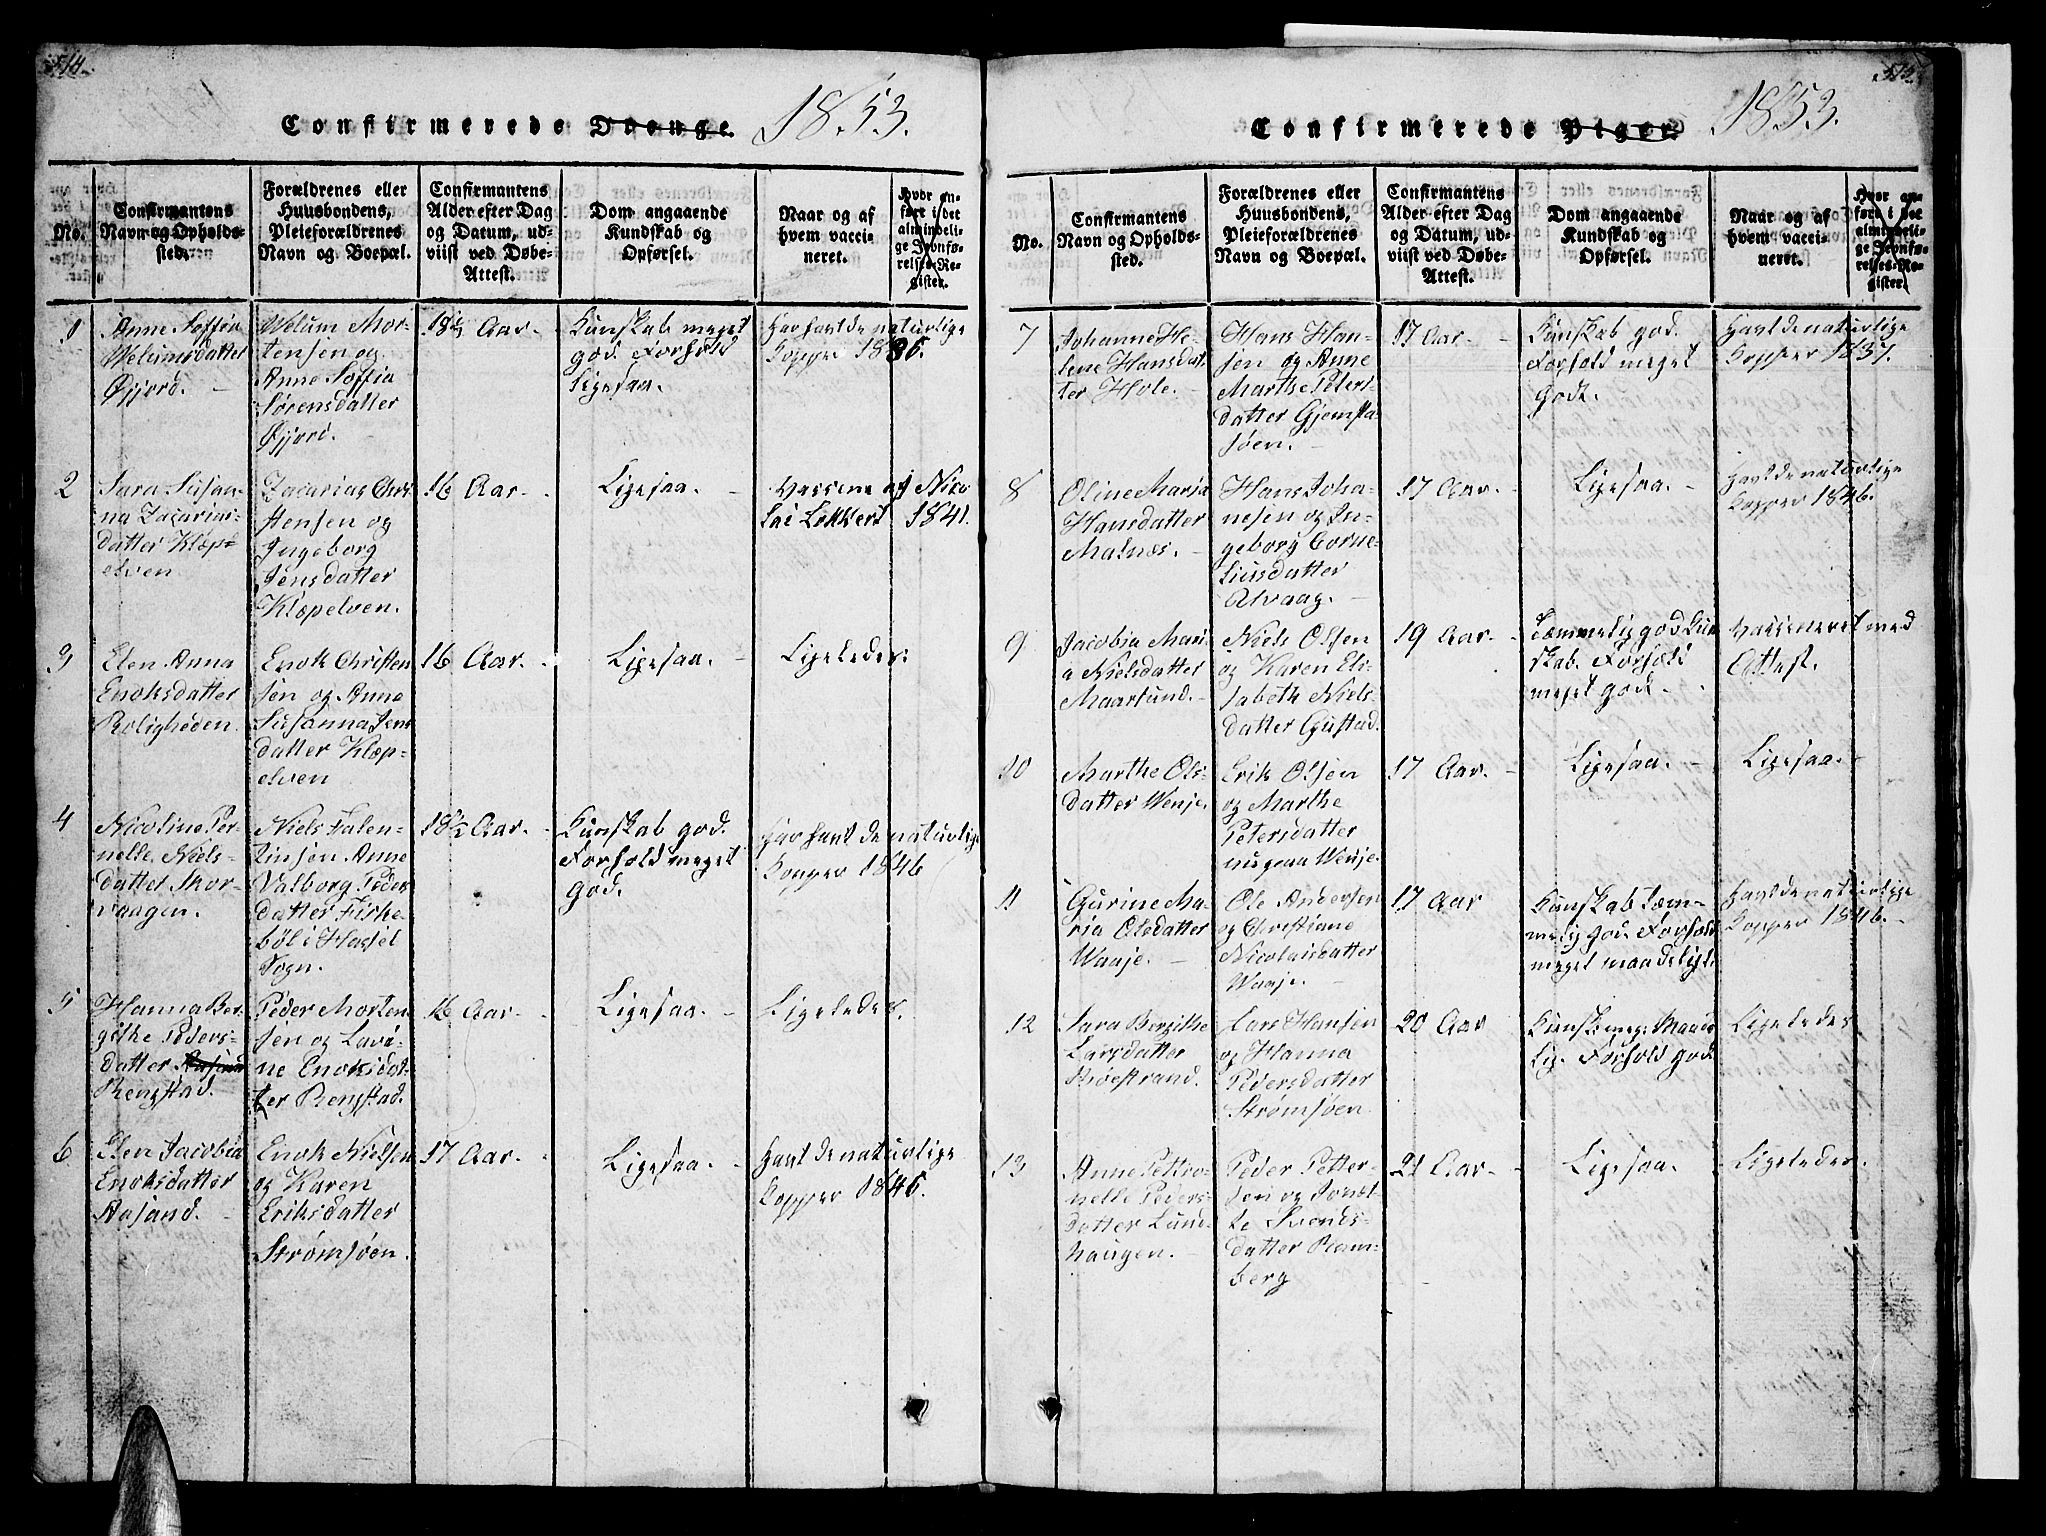 514.
Confirmerede Drenge. 1853.
No.
Confirmantens Navn og Opholdssted.
Forældrenes eller Huusbondens, Pleieforældrenes Navn og Boepæl.
Confirmantens Alder efter Dag og Datum, udviist ved Døbe-Attest.
Dom angaaende Kundskab og Opførsel.
Naar og af hvem vaccineret.
Hvor anført i det almindelige Jevnførelses-Register.
1
Anne Soffia
Welumsdatter
Øjjord.
Welum Mor-
tensen og
Anne Soffia
Sørensdatter
Øjjord.
18½ Aar.
Kunskab meget
god. Forhold
Ligesaa.
Har havt de naturlige
Kopper 1836.
2
Sara Susan-
na Zacarias-
datter Klæp-
elven
Zacarias Chri
stensen og
Ingeborg
Jensdatter
Klæpelven.
16 Aar.
Ligesaa.
Vassene af Nico
lai Lokkert 1841.
3
Elen Anna
Enoksdatter
Roligheden.
Enok Christen
sen og Anne
Susanna Jens
datter Klæp-
elven
16 Aar.
Ligesaa.
Ligeledes.
4
Nicoline Per-
nelle Niels-
datter Skor-
vaagen.
Niels Falen-
tinsen Anne
Valborg Peder
datter Fiske-
böl i Hassel
Sogn.
18½ Aar.
Kunskab god.
Forhold meget
god.
Har havt de naturlige
Kopper 1846
5
Hanna Ber-
githe Peders-
datter
Rengstad.
Peder Morten
sen og Lavi-
ne Enoksdat-
ter Rengstad.
16 Aar.
Ligesaa.
Ligeledes.
6
Elen Jacobia
Enoksdatter
Aasand.
Enok Nielsen
og Karen
Eriksdatter
Strømsöen.
17 Aar.
Ligesaa.
Havt de naturlige
Kopper 1846.
515.
Confirmerede Piger. 1853.
No.
Confirmantens Navn og Opholdssted.
Forældrenes eller Huusbondens, Pleieforældrenes Navn og Boepæl.
Confirmantens Alder efter Dag og Datum, udviist ved Døbe-Attest.
Dom angaaende Kundskab og Opførsel.
Naar og af hvem vaccineret.
Hvor anført i det almindelige Jevnførelses-Register.
7
Johanne He-
lene Hansdat
ter Hole.
Hans Han-
sen og Anne
Marthe Peters
datter Gjemsta-
söen.
17 Aar.
Kunskab god.
Forhold meget
godt.
Havt de naturlige
Kopper 1837.
8
Oline Maria
Hansdatter
Malnæs.
Hans Joha-
nesen og In-
geborg Corne-
liusdatter
Alvaag.
17 Aar.
Ligesaa.
Havt de naturlige
Kopper 1846.
9
Jacobia Mari
a Nielsdatter
Maarsund.
Niels Olsen
og Karen Eli
sabeth Niels
datter Gustad.
19 Aar.
Temmelig god Kun
skab. Forhold
meget godt.
Vasseneret med
Attest.
10
Marthe Ols-
datter Wenje.
Erik Olsen
og Marthe
Petersdatter
Wenje.
17 Aar.
Ligesaa.
Ligesaa.
11
Gurine Ma-
ria Olsdatter
Waaje.
Ole Andersen
og Christiane
Nicolaisdatter
Waaje.
17 Aar
Kunskab tem-
melig god. Forhold
meget maadeligt.
Havt de naturlige
Kopper 1846.
12
Sara Bergithe
Larsdatter
Röestrand.
Lars Hansen
og Hanna
Pedersdatter
Strömsöen
20 Aar
Kunsk. meg. Maade
lig. Forhold god
Ligeledes
13
Anne Pettro-
nelle Peders
datter Lund
haugen.
Peder Petter-
sen og Jonet-
te Svends-
datter Ram-
berg
21 Aar.
Ligesaa.
Ligeledes.